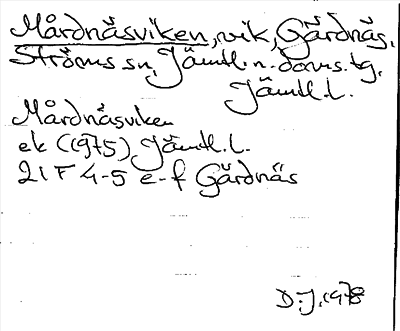 Mårdnäsviken, vik, Gärdnäs,
Ströms sn, Jämtl. n. doms. tg,
Jämtl. l.
Mårdnäsviken
ek (1975) Jämtl. l.
21 F 4-5 e-f Gärdnäs
D.J. 1978